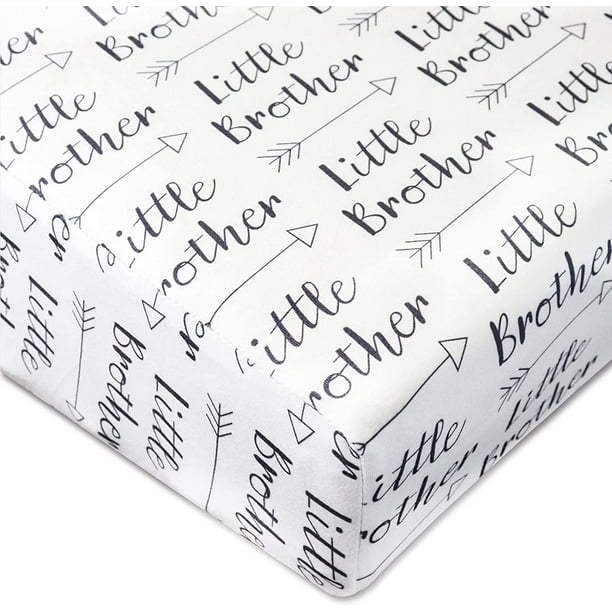 Little
Little
Brother
Little
Brother
Little
Brother
Little
Brother
Little
Brother
Little
Brother
Little
rother
Little
Brother
Little
rother
Little
Brother
Little
Brother
Little
Brother
Little
Brother